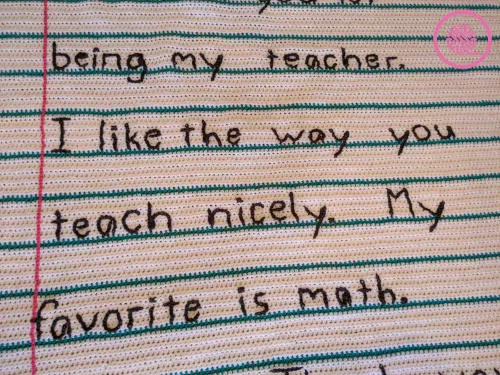 being my teacher.
I like the way you
teach nicely. My
favorite is math.